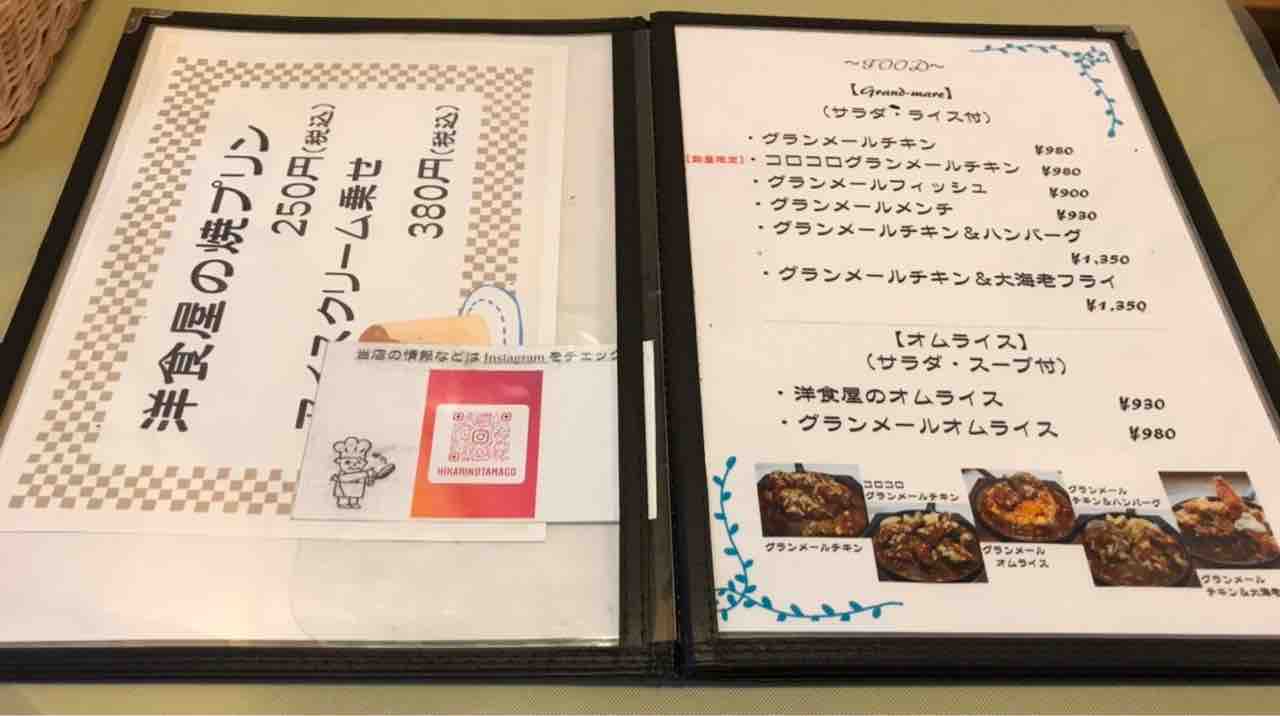 洋食屋の焼プリン
250円(税込)
アイスクリーム乗せ
380円(税込)
当店の情報などは Instagram をチェック
HIKARINOTAMAGO
～FOOD～
【Grand-mare】
（サラダ・ライス付）
・グランメールチキン ¥980
【数量限定】・コロコログランメールチキン ¥980
・グランメールフィッシュ ¥900
・グランメールメンチ ¥930
・グランメールチキン＆ハンバーグ
¥1,350
・グランメールチキン＆大海老フライ
¥1,350
【オムライス】
（サラダ・スープ付）
・洋食屋のオムライス ¥930
・グランメールオムライス ¥980
グランメールチキン
コロコロ
グランメールチキン
グランメール
オムライス
グランメール
チキン＆ハンバーグ
グランメール
チキン＆大海老